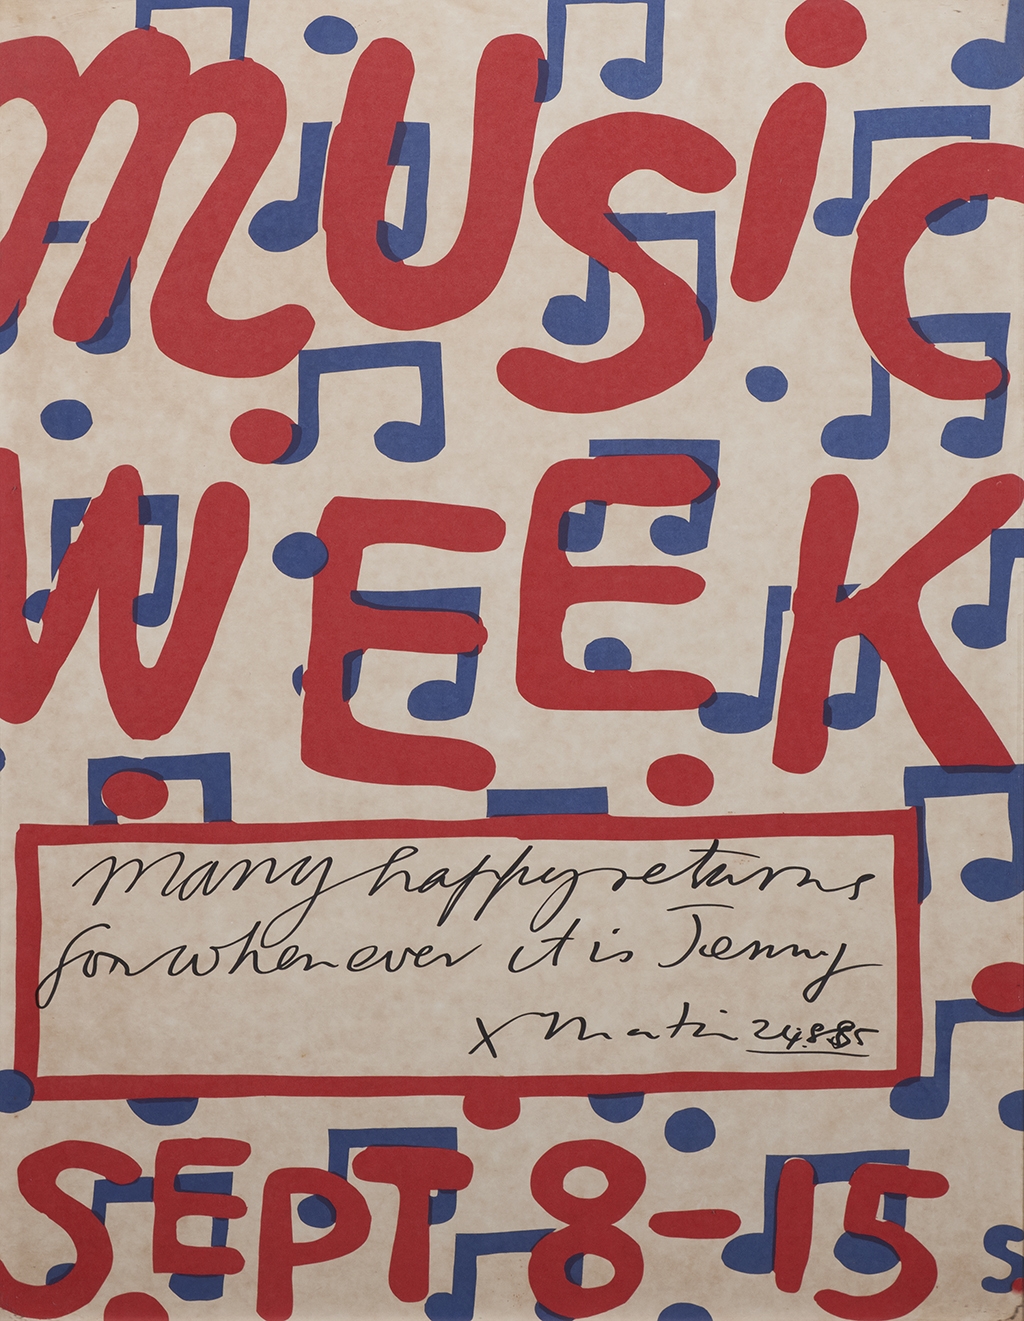 MUSiC
WEEK
many happy returns
for whenever it is Jenny
x Martin 24.8.85
SEPT 8-15
S